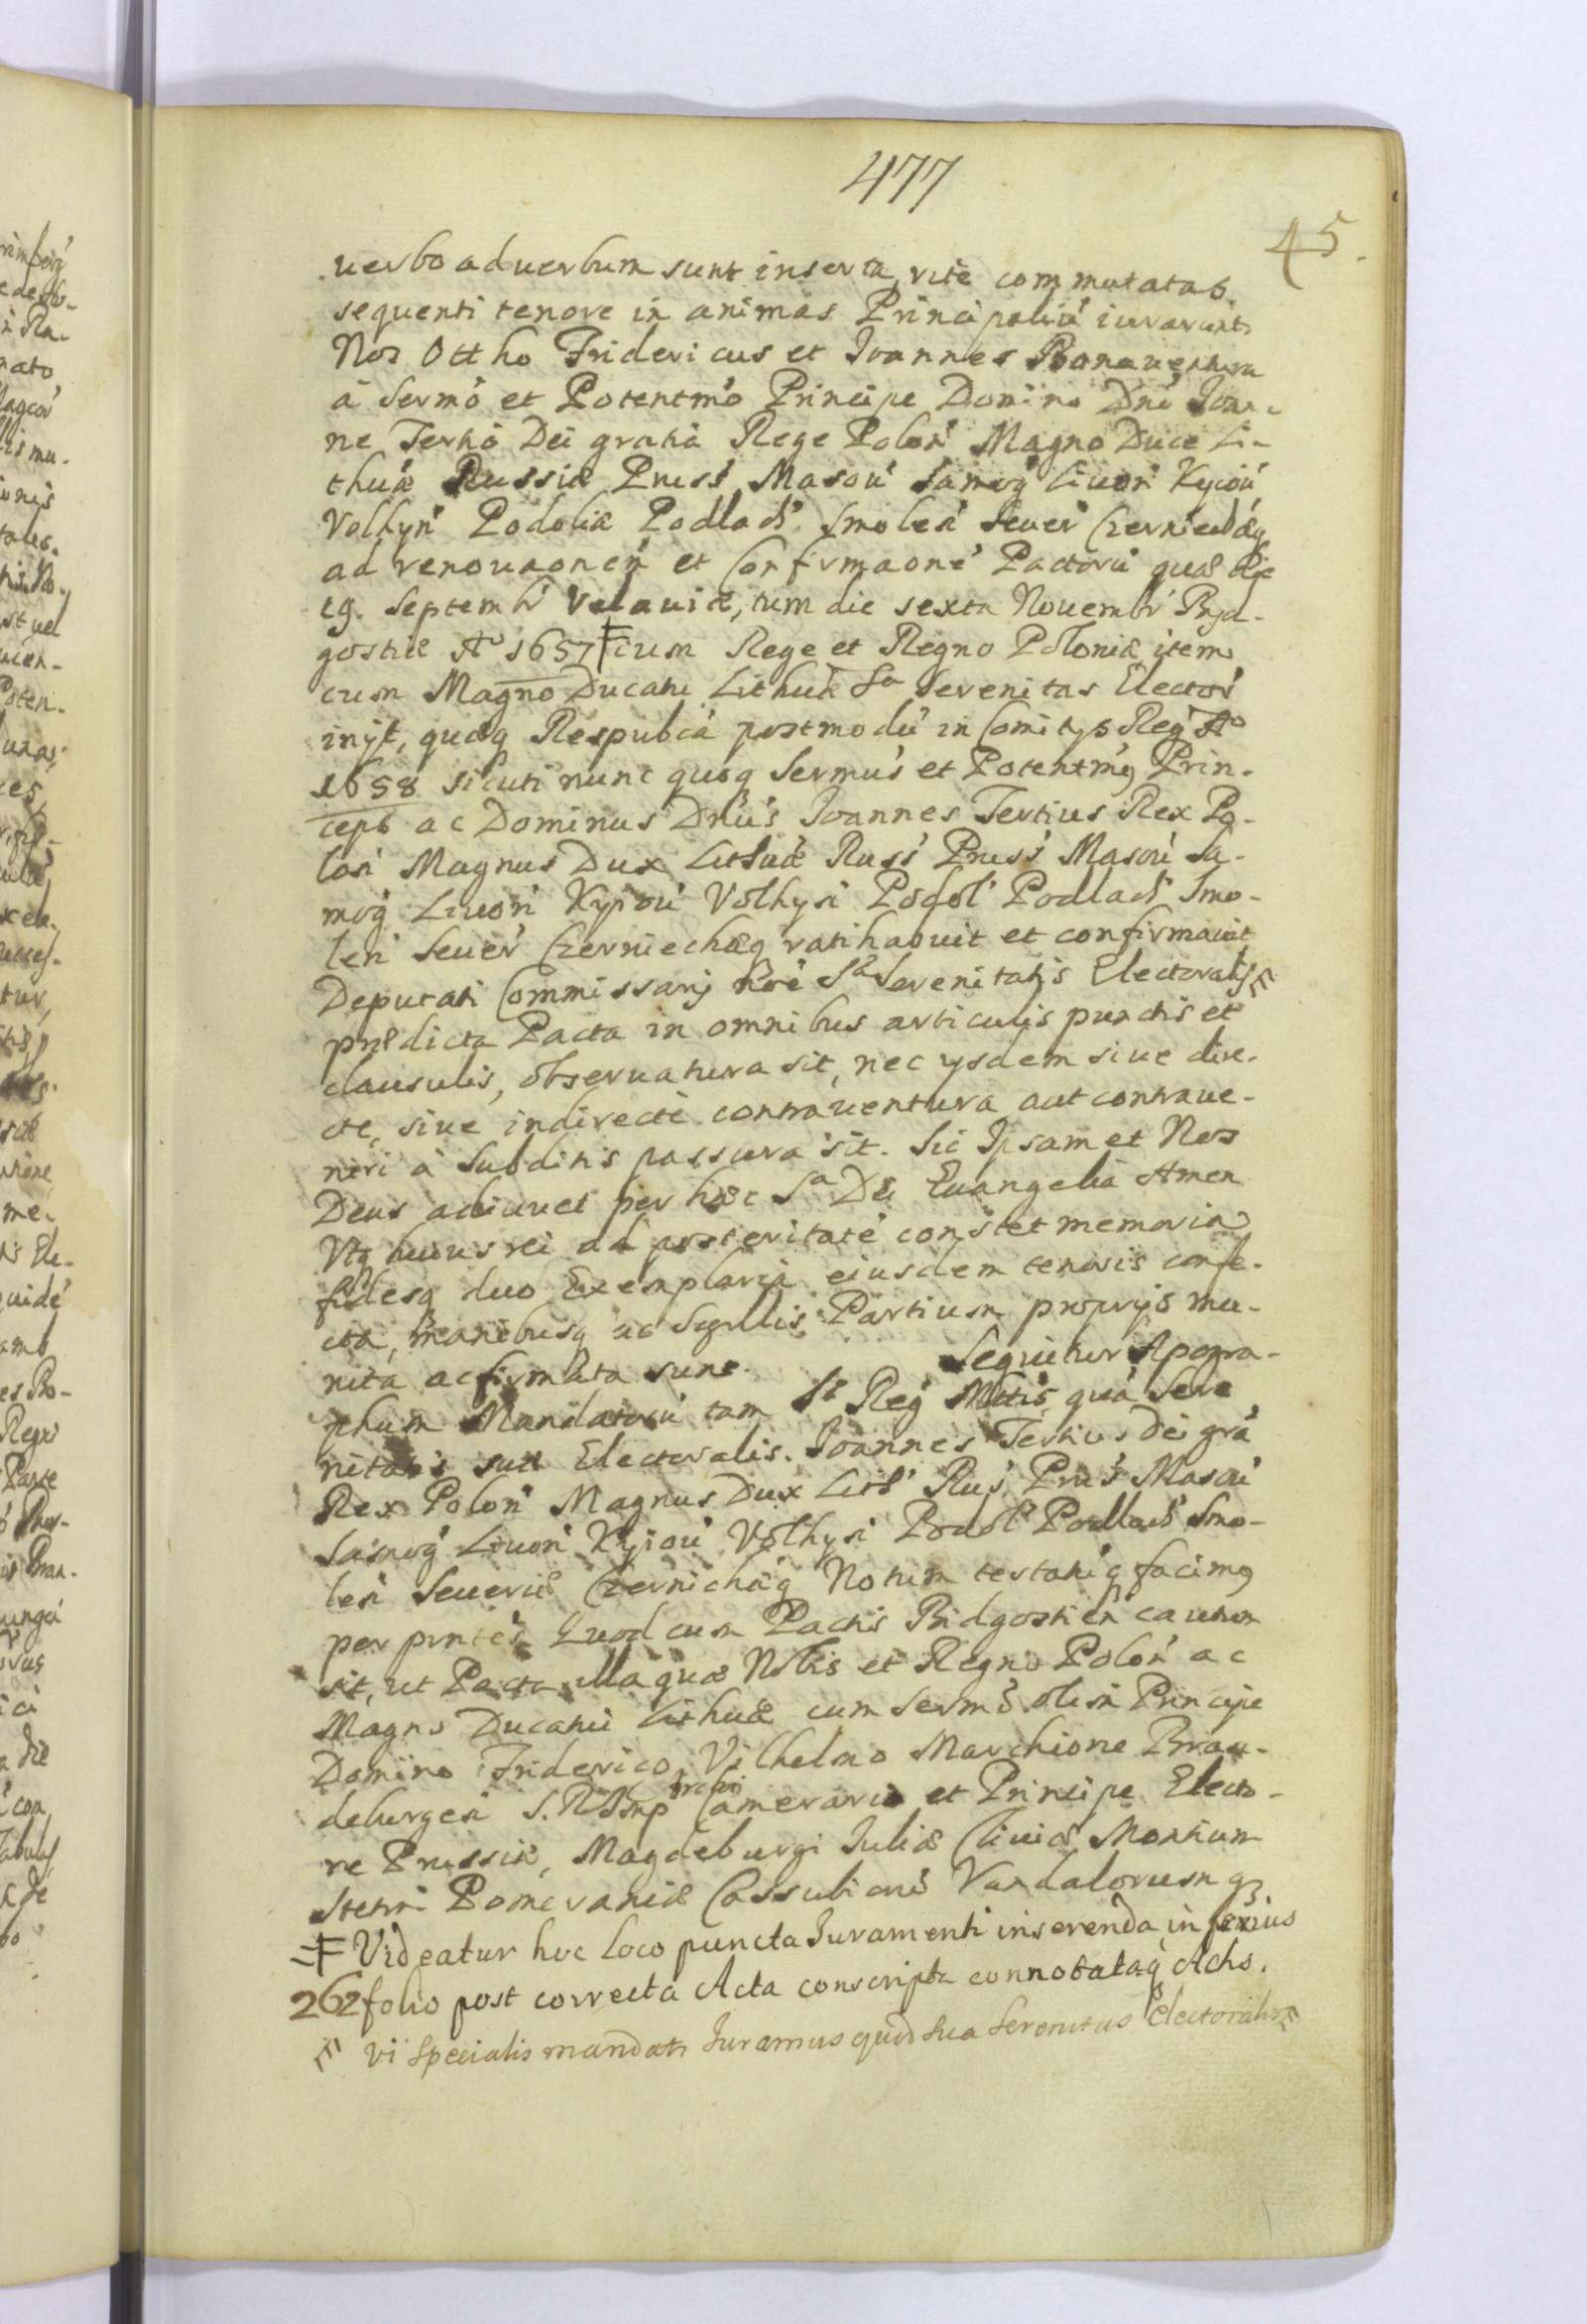 477
45.
uerbo aduerbum sunt inserta, ritè commutatas
sequenti tenore in animas Principaliũ iurarunt
Nos Ottho Fridericus et Joannes Bonauentura
à Sermo et Potentmo Principe Domino Dno Joan-
ne Tertio Dei gratia Rege Polon Magno Duce Li-
thuæ Russiæ Pruss Masou Samog Liuon Kyiou
Volhyn Podoliæ Podlach Smolen Seuer Czerniechæq
ad renouaonem et Confirmaone Pactoru quæ die
19. Septembr Velauiæ, tum die sexta Nouembr Byd-
gostiæ Ao 1657 cum Rege et Regno Poloniæ item
cum Magno Ducatu Lithuæ Sa Serenitas Elector
inijt, quæq Respubca postmodu in Comitijs Reg Ao
1658 sicuti nunc quoq Sermus et Potentmq Prin-
ceps ac Dominus Dnus Joannes Tertius Rex Po-
lon Magnus Dux Lithuæ Russ Pruss Masou Sa-
mog Liuon Kyiou Volhyn Podol Podlach Smo-
len Seuer Czerniechæq ratihabuit et confirmauit
Deputati Commissarij Sæ Serenitatis Electoralis
prædicta Pacta in omnibus articulis punctis et
clausulis, obseruatura sit, nec ijsdem siue dire-
cte, siue indirectè contrauentura aut contraue-
niri à Subditis passura sit. Sic Ipsam et Nos
Deus adiuuet per hæc Sa Dei Euangelia Amen
Vtq huius rei ad posteritate constet memoria
fidesq duo Exemplaria eiusdem tenoris confe-
cta, manibusq ac Sigillis Partium proprijs mu-
nita ac firmata sunt. Sequitur Apogra-
phum Mandatoru tam Sæ Reg Mttis, quá Sere
nitatis suæ Electoralis. Joannes Tertius Dei gra
Rex Polon Magnus Dux Lith Rus Prus Masou
Samog Liuon Kyiou Volhyn Podol Podlach Smo-
len Seueriæ Czernichæq Notum testatuq facimq
per prntes. Quod cum Pactis Bidgostien cautum
sit, ut Pacta illa quæ Nobis et Regno Polon ac
Magno Ducatui Lithuæ cum Sermo olim Principe
Domino Friderico Vilhelmo Marchione Bran-
deburgen S. R Imp Archi Camerario et Principe Electo-
re Prussiæ, Magdeburgi Juliæ Cliuiæ Montium
Stetini Pomeraniæ Cassubioru Vandalorum q
Videatur hoc loco puncta Juramenti inserenda, inferius
262 folio post correcta Acta conscripta connotataq Actis.
vi Specialis mandati Juramus quod Sua Serenitas Electoralis